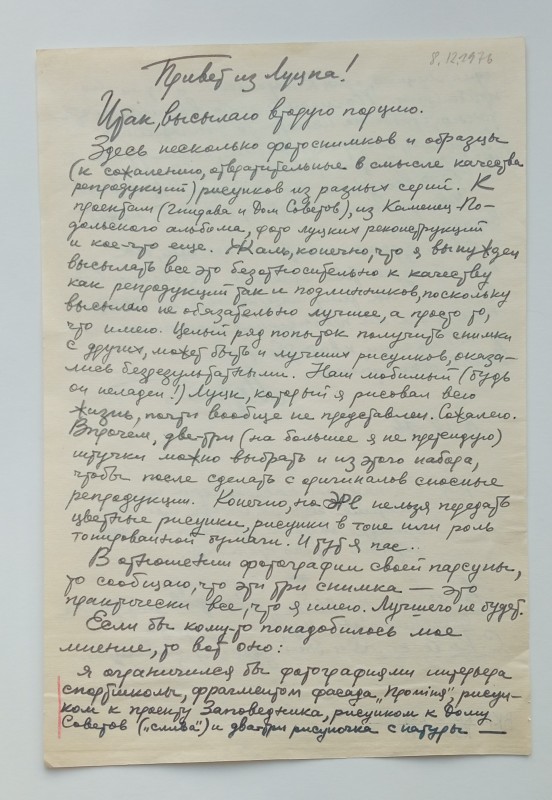 8.12.1976
Привет из Луцка!
Итак, высылаю вторую порцию.
Здесь несколько фотоснимков и образцы
(к сожалению, отвратительные в смысле качества
репродукций) рисунков из разных серий. К
проектам ( и Дом Советов), из Каменец-По-
дольского альбома, фото луцких реконструкций
и кое-что еще. Жаль, конечно, что я вынужден
высылать все это безотносительно к качеству
как репродукций так и подлинников, поскольку
высылаю не обязательно лучшее, а просто то,
что имею. Целый ряд попыток получить снимки
с других, может быть и лучших рисунков, оказа-
лись безрезультатными. Наш любимый (будь
он неладен!) Луцк, который я рисовал всю
жизнь, почти вообще не представлен. Сожалею.
Впрочем, две-три (на большее я не претендую)
штучки можно выбрать и из этого набора,
чтобы после сделать с оригиналов сносные
репродукции. Конечно, на нельзя передать
цветные рисунки, рисунки в тоне или роль
тонированной бумаги. И тут я пас..
В отношении фотографии своей парсуны,
то сообщаю, что эти три снимка — это
практически все, что я имею. Лучшего не будет.
Если бы кому-то понадобилось мое
мнение, то вот оно:
я ограничился бы фотографиями интерьера
спортшколы, фрагментом фасада „Променя", рисун-
ком к проекту Заповедника, рисунком к Дому
Советов („слива") и два-три рисуночка с натуры —